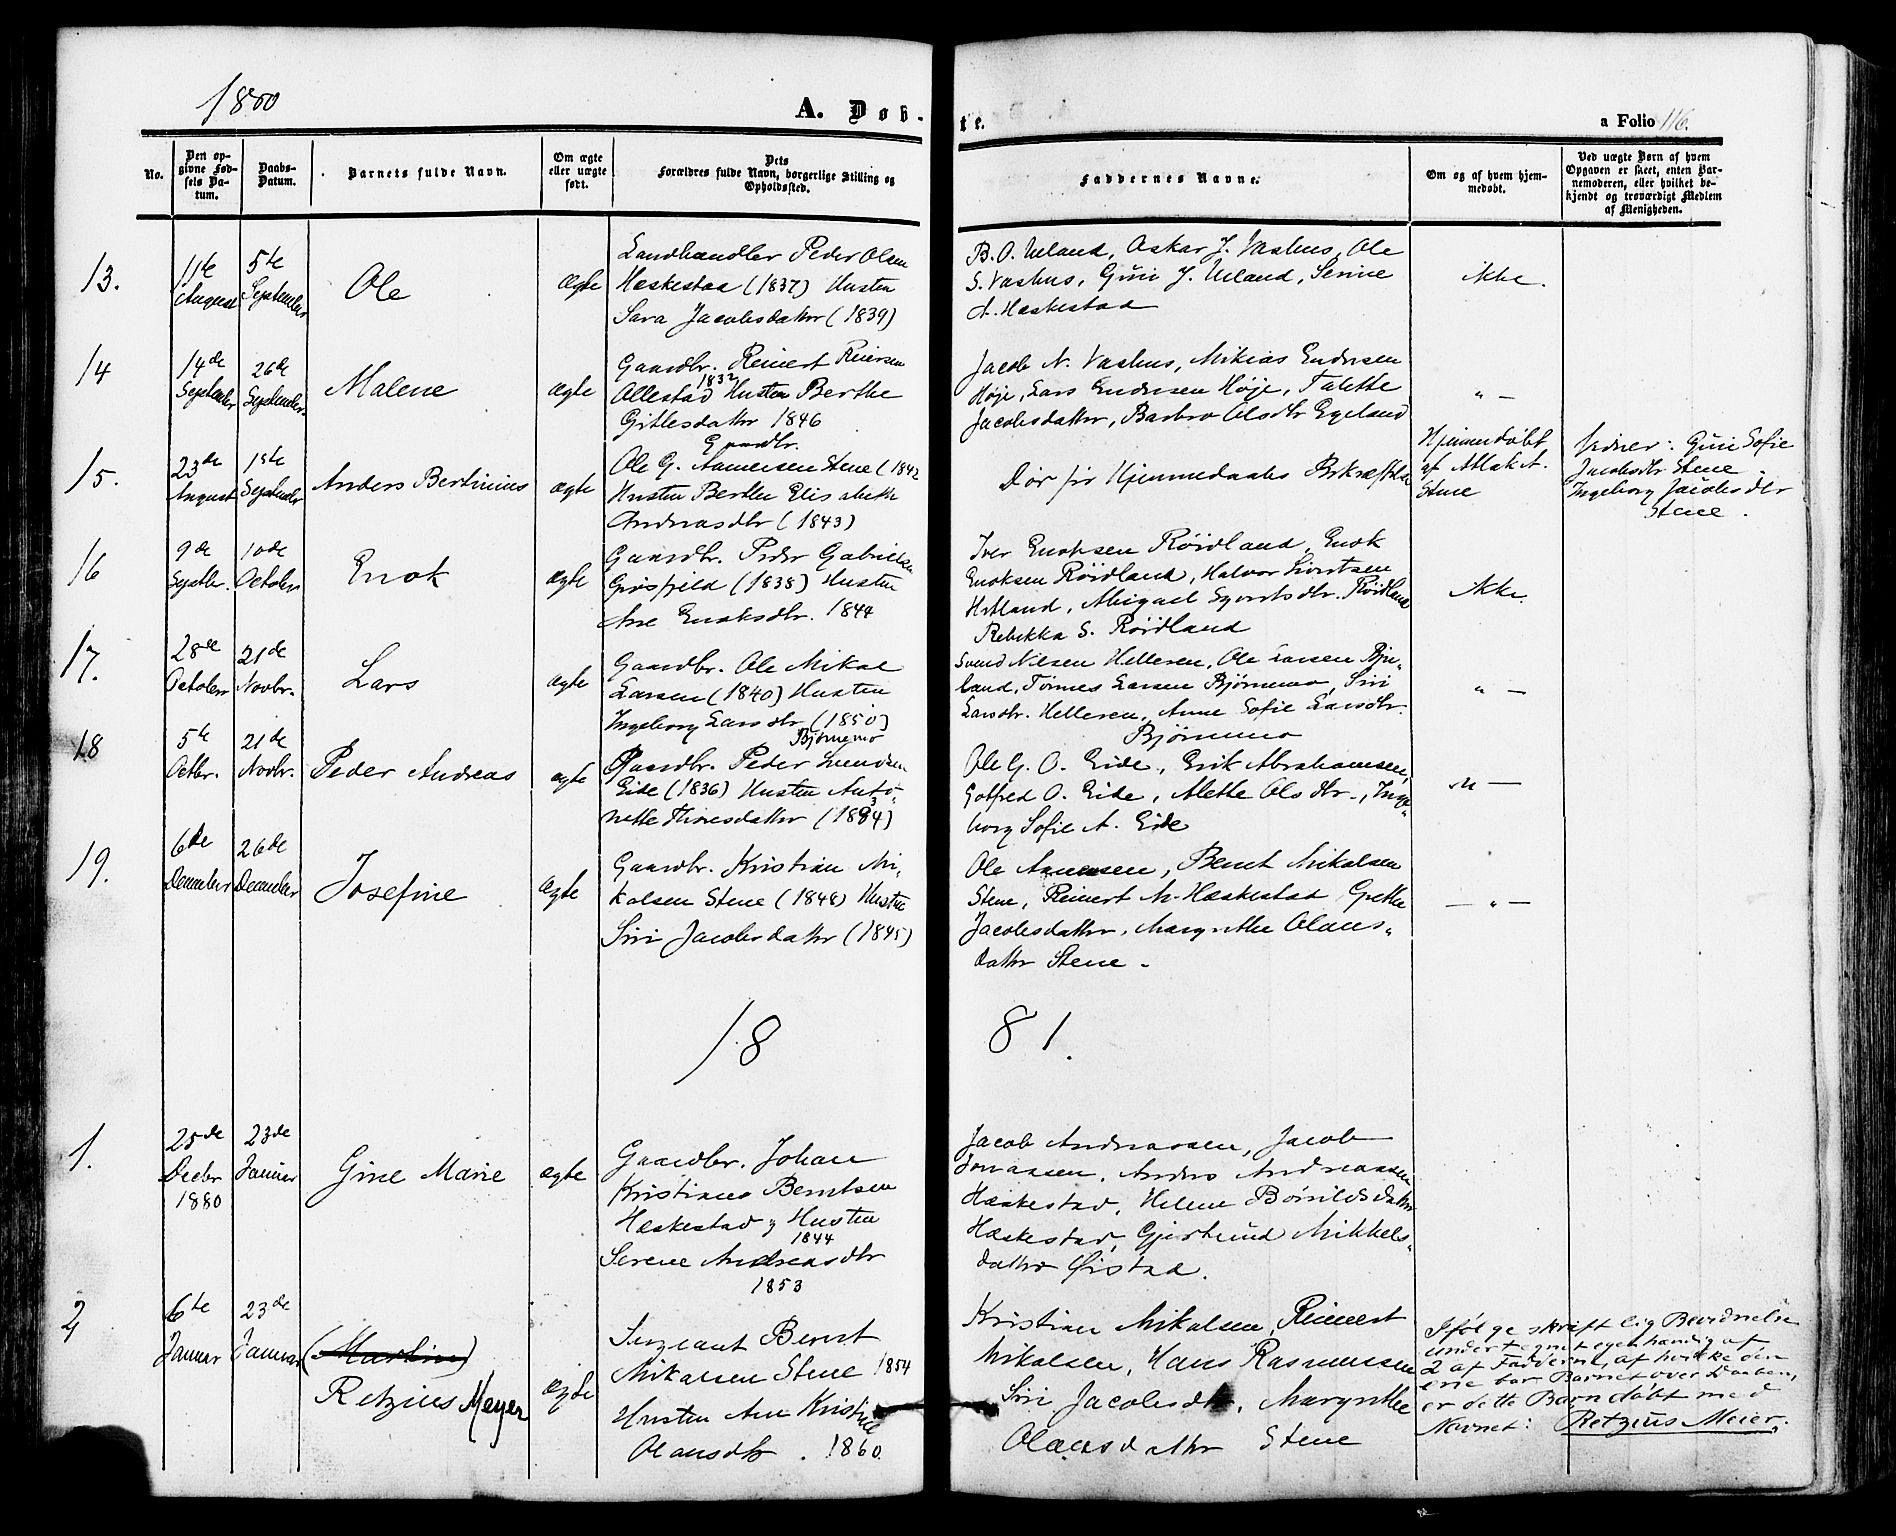 1880
A. Døb-
te.
a Folio 116.
No.
Den op-
givne Fød-
sels Da-
tum.
Daabs-
Datum.
Barnets fulde Navn.
Om ægte
eller uægte
født.
Dets
Forældres fulde Navn, borgerlige Stilling og
Opholdssted.
Faddernes Navne.
Om og af hvem hjem-
medøbt.
Ved uægte Børn af hvem
Opgaven er skeet, enten Bar-
nemoderen, eller hvilket be-
kjendt og troværdigt Medlem
af Menigheden.
13.
11te
August
5te
September
Ole
Ægte
Landhandler Peder Olsen
Hæskestad (1837) Hustru
Sara Jacobsdatter (1839)
B. O. Ueland, Oskar J. Vashus, Ole
S. Vashus, Guri J. Ueland, Serine
A. Hæskestad
ikke.
14
14de
September
26de
September.
Malene
ægte
Gaardbr. Reinert Reiersen
1832
Ollestad Hustru Berthe
Gitlesdatter 1846
Jacob N. Vashus, Mikias Endresen
Høje, Lars Endresen Høje, Talette
Jacobsdatter, Barbro Olsdtr Egeland
" –
15.
23de
August
1ste
September
Anders Bertinius
ægte
Gaardbr.
Ole G. Aanensen Stene (1842
Hustru Berthe Elisabeth
Andreasdtr (1843)
Dør før Hjemmedaabs Bekræftelse
Hjemmedøbt
af Aslak A.
Stene
Vidner: Guri Sofie
Jacobsdtr Stene
Ingeborg Jacobsdtr
Stene.
16
9de
Septbr.
10de
October
Enok
ægte
Gaardbr. Peder Gabrielsen
Grøsfjeld (1838) Hustru
Ane Enoksdtr. 1844
Iver Enoksen Røidland, Enok
Enoksen Røidland, Halvor Sivertsen
Hetland, Abigael Sivertsdtr. Røidland
Rebekka S. Røidland
ikke.
17.
28de
October
21de
Novbr.
Lars
ægte
Gaardbr. Ole Mikal
Larsen (1840) Hustru
Ingeborg Larsdtr (1850)
Bjørnemo
Svend Nilsen Helleren, Ole Larsen Bju-
land, Tønnes Larsen Bjørnemo, Siri
Larsdtr. Helleren, Anne Sofie Larsdtr.
Bjørnemo
" –
18
5te
Octbr.
21de
Novbr.
Peder Andreas
ægte
Gaardbr. Peder Svendsen
Eide (1836) Hustru Anto-
nette Thoresdatter (1834)
Ole G. O. Eide, Erik Abrahamsen,
Gotfred O. Eide, Alethe Olsdtr., Inge-
borg Sofie A. Eide
" –
19.
6de
December
26de
December
Josefine
Ægte
Gaardbr. Kristian Mi-
kalsen Stene (1848) Hustru
Siri Jacobsdatter (1845)
Ole Aanensen, Bernt Mikalsen
Stene, Reinert M. Hæskestad Grethe
Jacobsdatter, Margrethe Olaus-
datter Stene.
– " –
18
81.
1.
25de
Decbr
1880
23de
Januar
Gine Marie
ægte
Gaardbr. Johan
Kristians Berntsen
Hæskestad og Hustru
1844
Serene Andreasdtr
1853
Jacob Andreassen, Jacob
Jonassen, Anders Andreassen
Hæskestad, Helene Bårildsdatter
Hæskestad, Gjertrund Mikkels-
datter Øistad.
2
6te
Januar
23de
Januar
(Martin)
Retzius Meyer
Ægte
Sergeant Bernt
Mikalsen Stene 1854
Hustru Ane Kristine
Olausdtr. 1860
Kristian Mikalsen, Reinert
Mikalsen, Hans Rasmussen
Siri Jacobsdtr, Margrethe
Olausdatter Stene
Ifølge skriftlig Bevidnelse
undertegnet egenhændig af
2 af Fadderne, af hvilke den
ene bar Barnet over Daaben,
er dette Barn døbt med
Navnet: Retzius Meier.